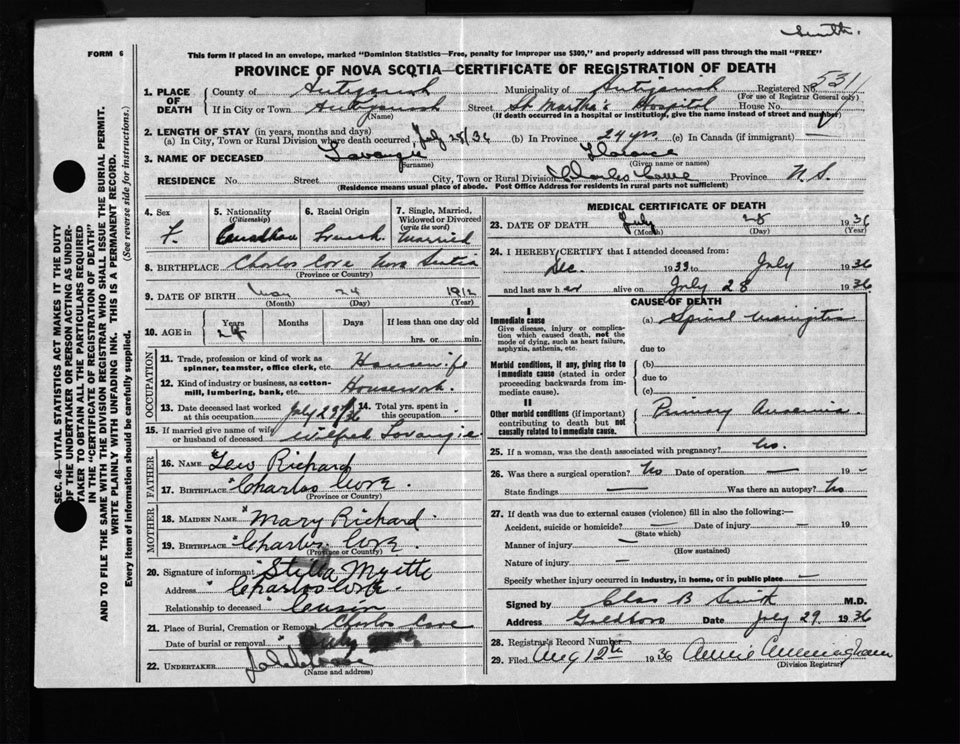 Smith.
FORM 6
This form if placed in an envelope, marked "Dominion Statistics—Free, penalty for improper use $300," and properly addressed will pass through the mail "FREE"
PROVINCE OF NOVA SCOTIA—CERTIFICATE OF REGISTRATION OF DEATH
1. PLACE OF DEATH County of Antigonish Municipality of Antigonish Registered No. 531
(For use of Registrar General only)
If in City or Town Antigonish Street St. Martha's Hospital House No.
(If death occurred in a hospital or institution, give the name instead of street and number)
2. LENGTH OF STAY (in years, months and days)
(a) In City, Town or Rural Division where death occurred, July 25/36 (b) In Province 24 yrs. (c) In Canada (if immigrant) —
3. NAME OF DECEASED Lavangie Florence
(Surname) (Given name or names)
RESIDENCE No. Street City, Town or Rural Division Charles Cove Province N.S.
(Residence means usual place of abode. Post Office Address for residents in rural parts not sufficient)
SEC. 46—VITAL STATISTICS ACT MAKES IT THE DUTY
OF THE UNDERTAKER OR PERSON ACTING AS UNDER-
TAKER TO OBTAIN ALL THE PARTICULARS REQUIRED
IN THE "CERTIFICATE OF REGISTRATION OF DEATH"
AND TO FILE THE SAME WITH THE DIVISION REGISTRAR WHO SHALL ISSUE THE BURIAL PERMIT.
WRITE PLAINLY WITH UNFADING INK. THIS IS A PERMANENT RECORD.
Every item of information should be carefully supplied. (See reverse side for instructions.)
4. Sex F.
5. Nationality (Citizenship) Canadian
6. Racial Origin French
7. Single, Married, Widowed or Divorced (write the word) Married
8. BIRTHPLACE Charlos Cove Nova Scotia
(Province or Country)
9. DATE OF BIRTH May 24 1912
(Month) (Day) (Year)
10. AGE in Years 24 Months Days If less than one day old
hrs. or min.
OCCUPATION
11. Trade, profession or kind of work as spinner, teamster, office clerk, etc. Housewife
12. Kind of industry or business, as cotton-mill, lumbering, bank, etc. Housework.
13. Date deceased last worked at this occupation July 23/36 14. Total yrs. spent in this occupation
15. If married give name of wife or husband of deceased Wilfred Lavangie
FATHER
16. NAME "Lew Richard
17. BIRTHPLACE "Charlos Cove.
(Province or Country)
MOTHER
18. MAIDEN NAME "Mary Richard
19. BIRTHPLACE "Charlos Cove
(Province or Country)
20. Signature of informant "Stella Myette
Address "Charlos Cove.
Relationship to deceased "Cousin
21. Place of Burial, Cremation or Removal Charlos Cove
Date of burial or removal
22. UNDERTAKER
(Name and address)
MEDICAL CERTIFICATE OF DEATH
23. DATE OF DEATH July 28 1936
(Month) (Day) (Year)
24. I HEREBY CERTIFY that I attended deceased from:
Dec. 1933 to July 1936
and last saw her alive on July 28 1936
CAUSE OF DEATH
I
Immediate cause
Give disease, injury or complication which caused death, not the mode of dying, such as heart failure, asphyxia, asthenia, etc.
(a) Spinal Meningitis
due to
Morbid conditions, if any, giving rise to immediate cause (stated in order proceeding backwards from immediate cause).
(b)
due to
(c)
II
Other morbid conditions (if important) contributing to death but not causally related to immediate cause.
Primary Anaemia
25. If a woman, was the death associated with pregnancy? No.
26. Was there a surgical operation? No Date of operation — 19 -
State findings — Was there an autopsy? No
27. If death was due to external causes (violence) fill in also the following:—
Accident, suicide or homicide? — Date of injury — 19
(State which)
Manner of injury —
(How sustained)
Nature of injury —
Specify whether injury occurred in industry, in home, or in public place —
Signed by Chas B Smith M.D.
Address Goldboro Date July 29. 1936
28. Registrar's Record Number
29. Filed Aug 12th 1936 Annie Cunningham
(Division Registrar)